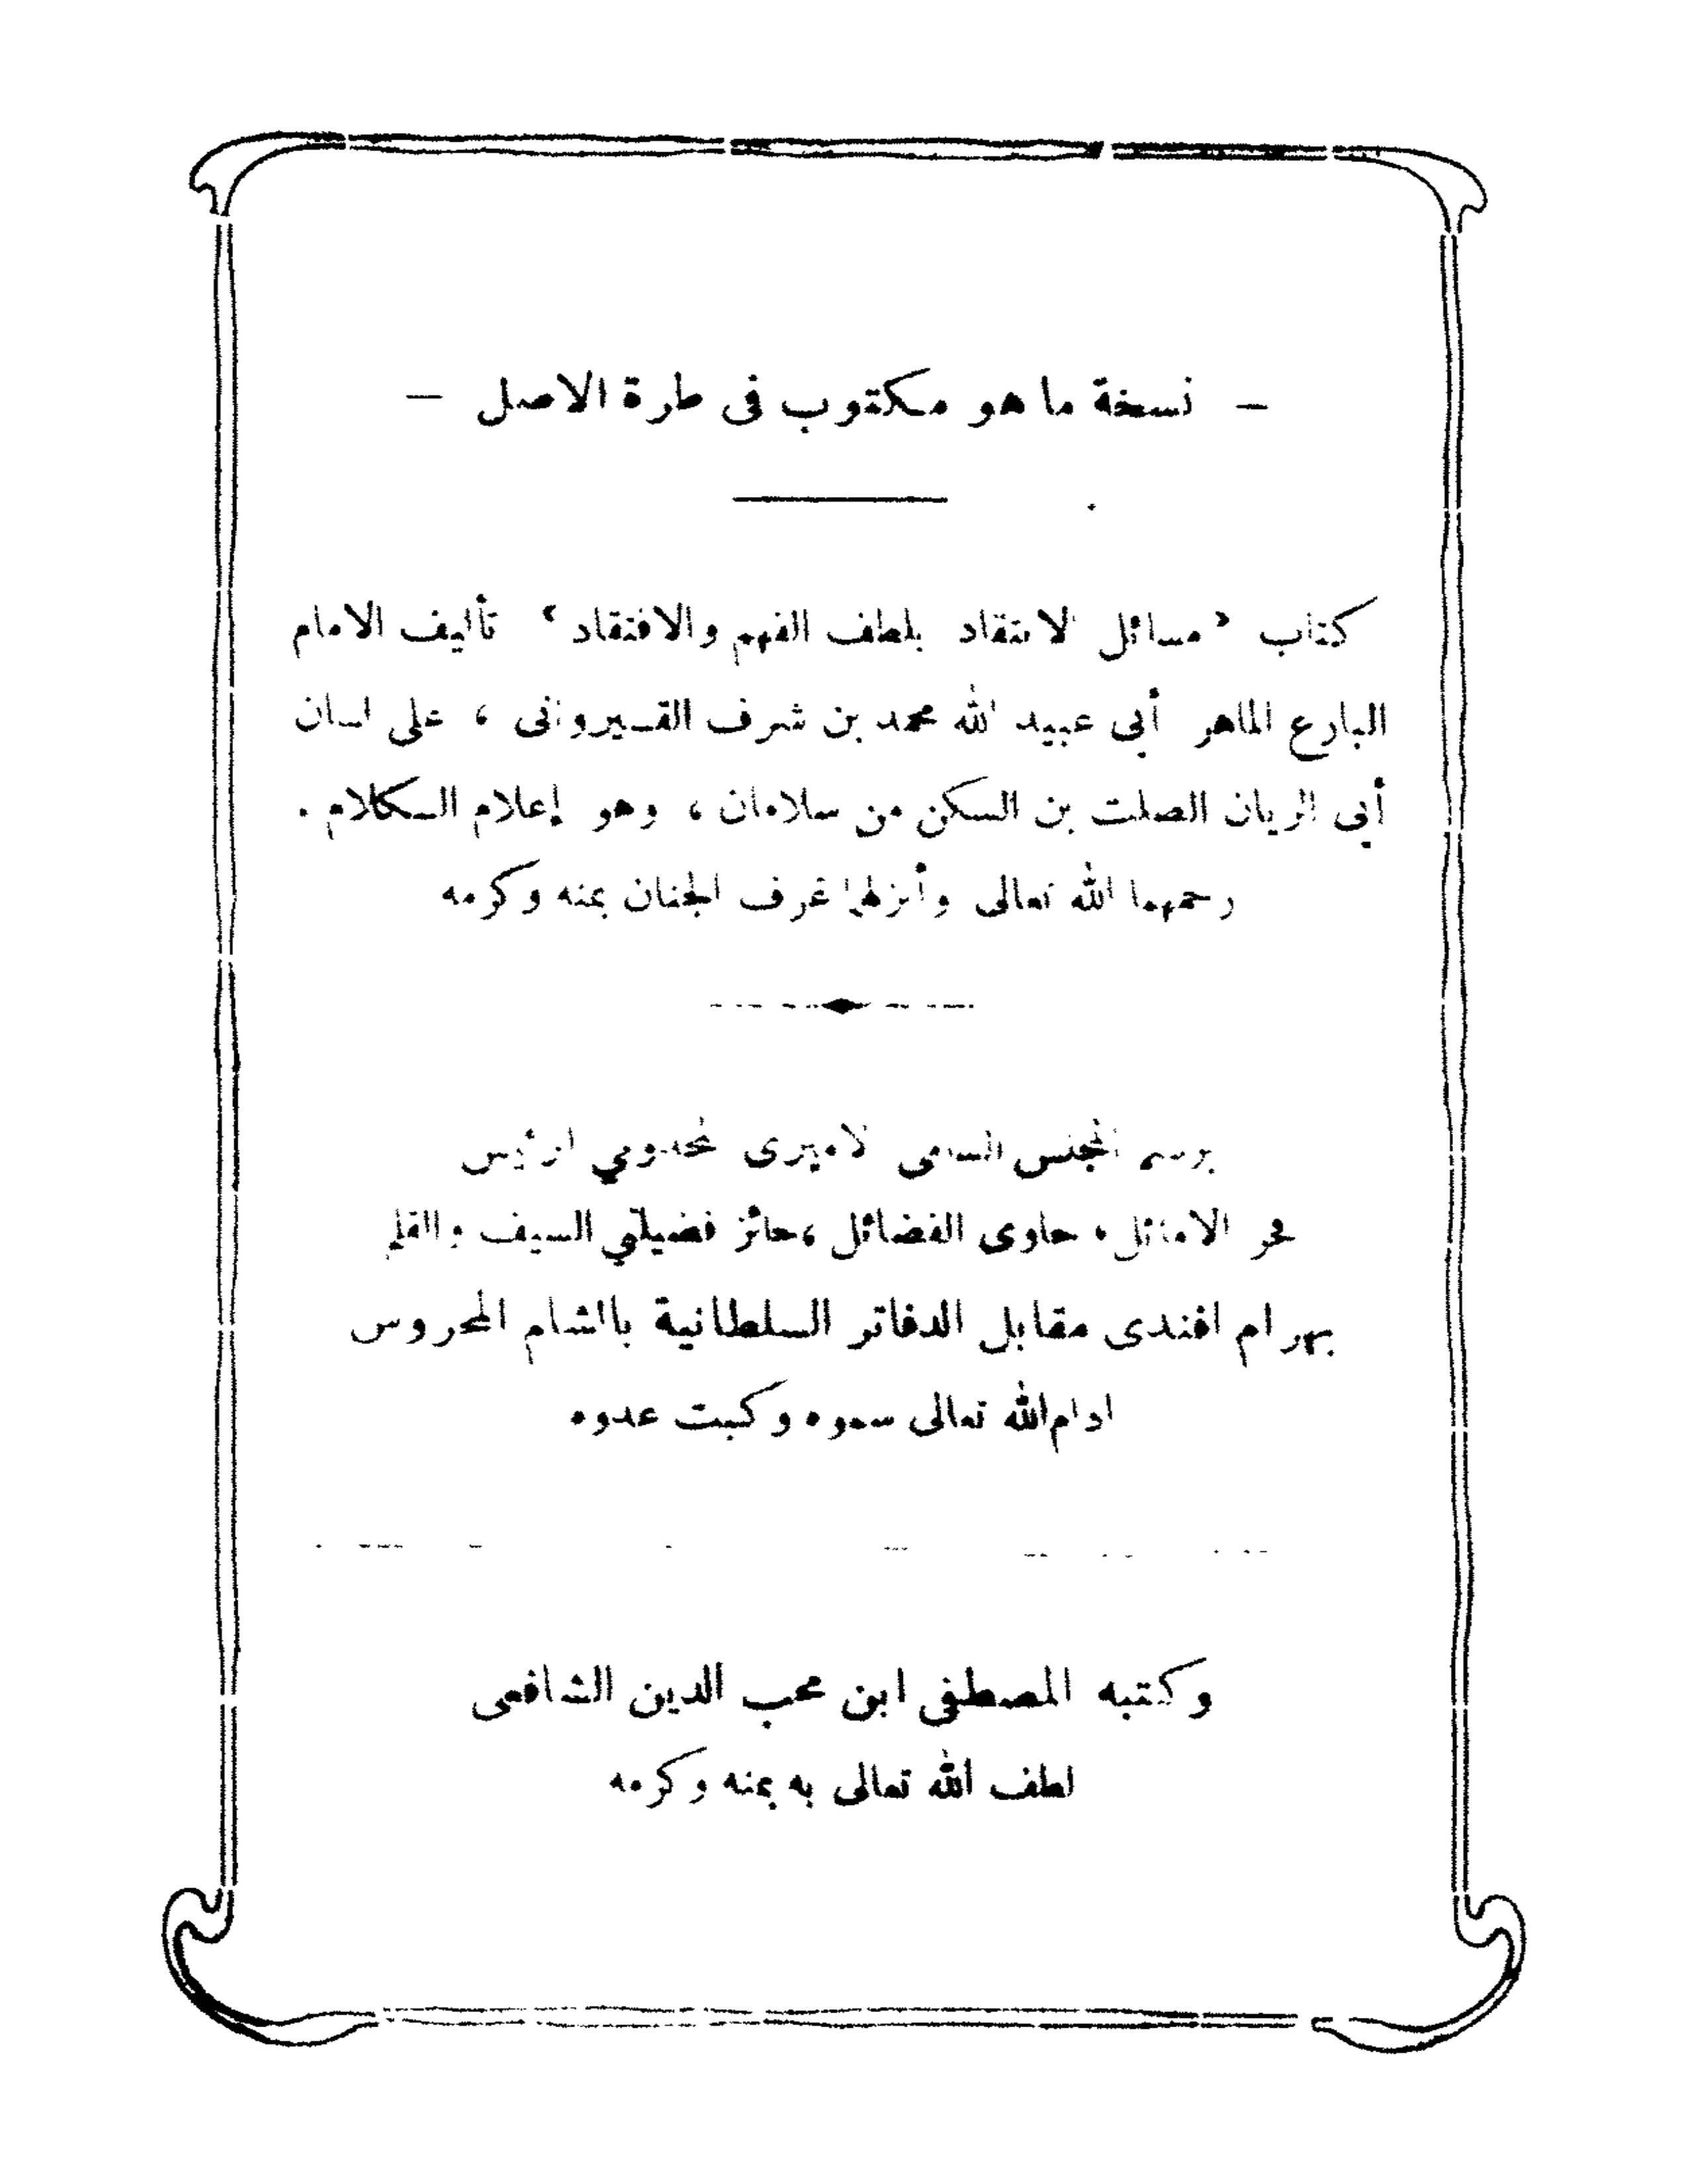 — نسخة ما هو مكتوب فى طرة الاصل —
كتاب «مسائل الانتقاد بلطف الفهم والافتقاد» تأليف الامام
البارع الماهر أبي عبيد الله محمد بن شرف القيروانى ، على لسان
أبى الريان الصلت بن السكن من سلامان ، وهو إعلام الكلام .
رحمهما الله تعالى وأنزلهما غرف الجنان بمنه وكرمه
برسم المجلس السامى الاميرى المخدومي الرئيس
فخر الاماثل ، حاوى الفضائل ، حائز فضيلتي السيف والقلم
بهرام افندى مقابل الدفاتر السلطانية بالشام المحروس
ادام الله تعالى سموه وكبت عدوه
وكتبه المصطفى ابن محب الدين الشافعى
لطف الله تعالى به بمنه وكرمه